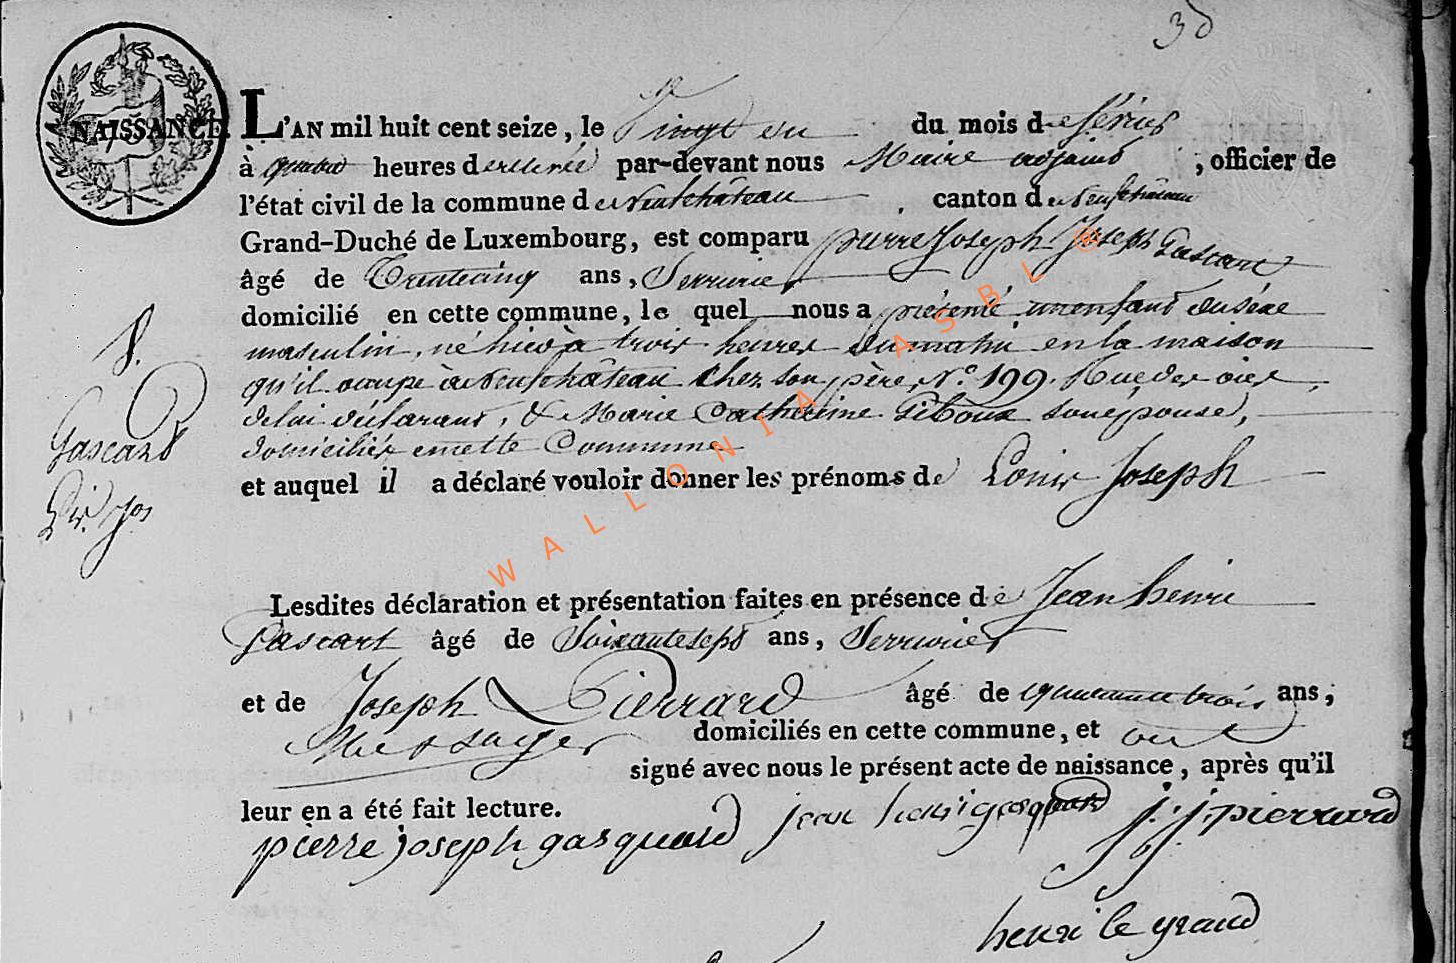 3
NAISSANCE.
L'AN mil huit cent seize, le Vingt un du mois de février
à quatre heures de relevée par-devant nous Maire adjoint, officier de
l'état civil de la commune de Neufchâteau, canton de Neufchâteau
Grand-Duché de Luxembourg, est comparu pierre Joseph Joseph Gascart
âgé de Trentecinq ans, Serrurier
domicilié en cette commune, le quel nous a présenté un enfant du séxe
masculin, né hier à trois heures du matin en la maison
qu'il occupe à Neufchâteau chez son père, N.° 199. Rue des
de lui déclarant, & Marie Catherine Giboux son épouse,
domiciliés en cette Commune
et auquel il a déclaré vouloir donner les prénoms de Louis Joseph
8.
Gascard
Jos
Lesdites déclaration et présentation faites en présence de Jean henri
Gascart âgé de Soixantesept ans, Serrurier
et de Joseph Pierrard âgé de quarante trois ans,
Messager domiciliés en cette commune, et ont
signé avec nous le présent acte de naissance, après qu'il
leur en a été fait lecture.
pierre joseph gasquard jean henri gasquard j. j. pierrard
henri le grand
WALLONIA ASBL ©